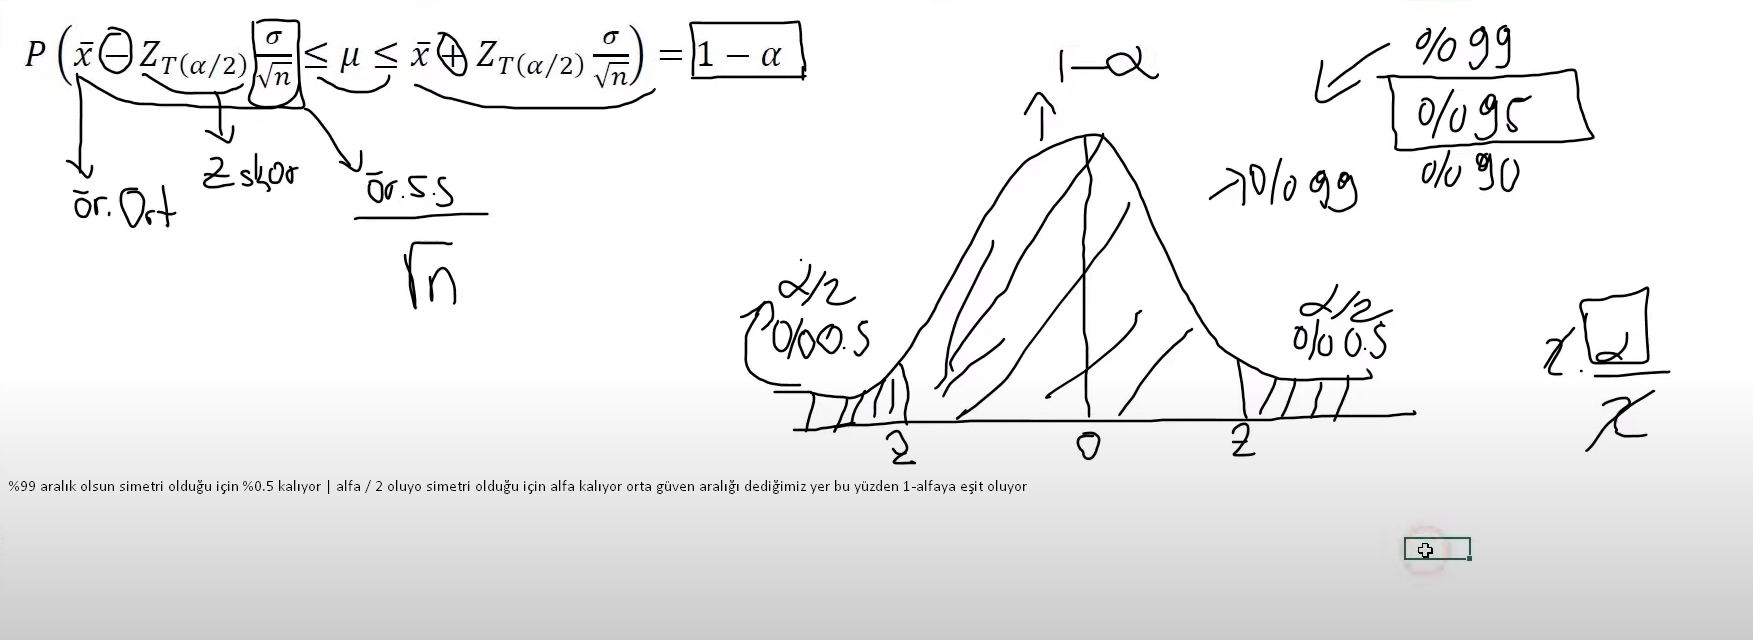 P(x̄ − Z_T(α/2) σ/√n ≤ μ ≤ x̄ + Z_T(α/2) σ/√n) = 1 − α
ör. Ort
Z skor
ör. S.S
√n
1−α
%99
%95
%90
%99
α/2
%0.5
α/2
%0.5
2
0
2
2. α
2
%99 aralık olsun simetri olduğu için %0.5 kalıyor | alfa / 2 oluyo simetri olduğu için alfa kalıyor orta güven aralığı dediğimiz yer bu yüzden 1-alfaya eşit oluyor